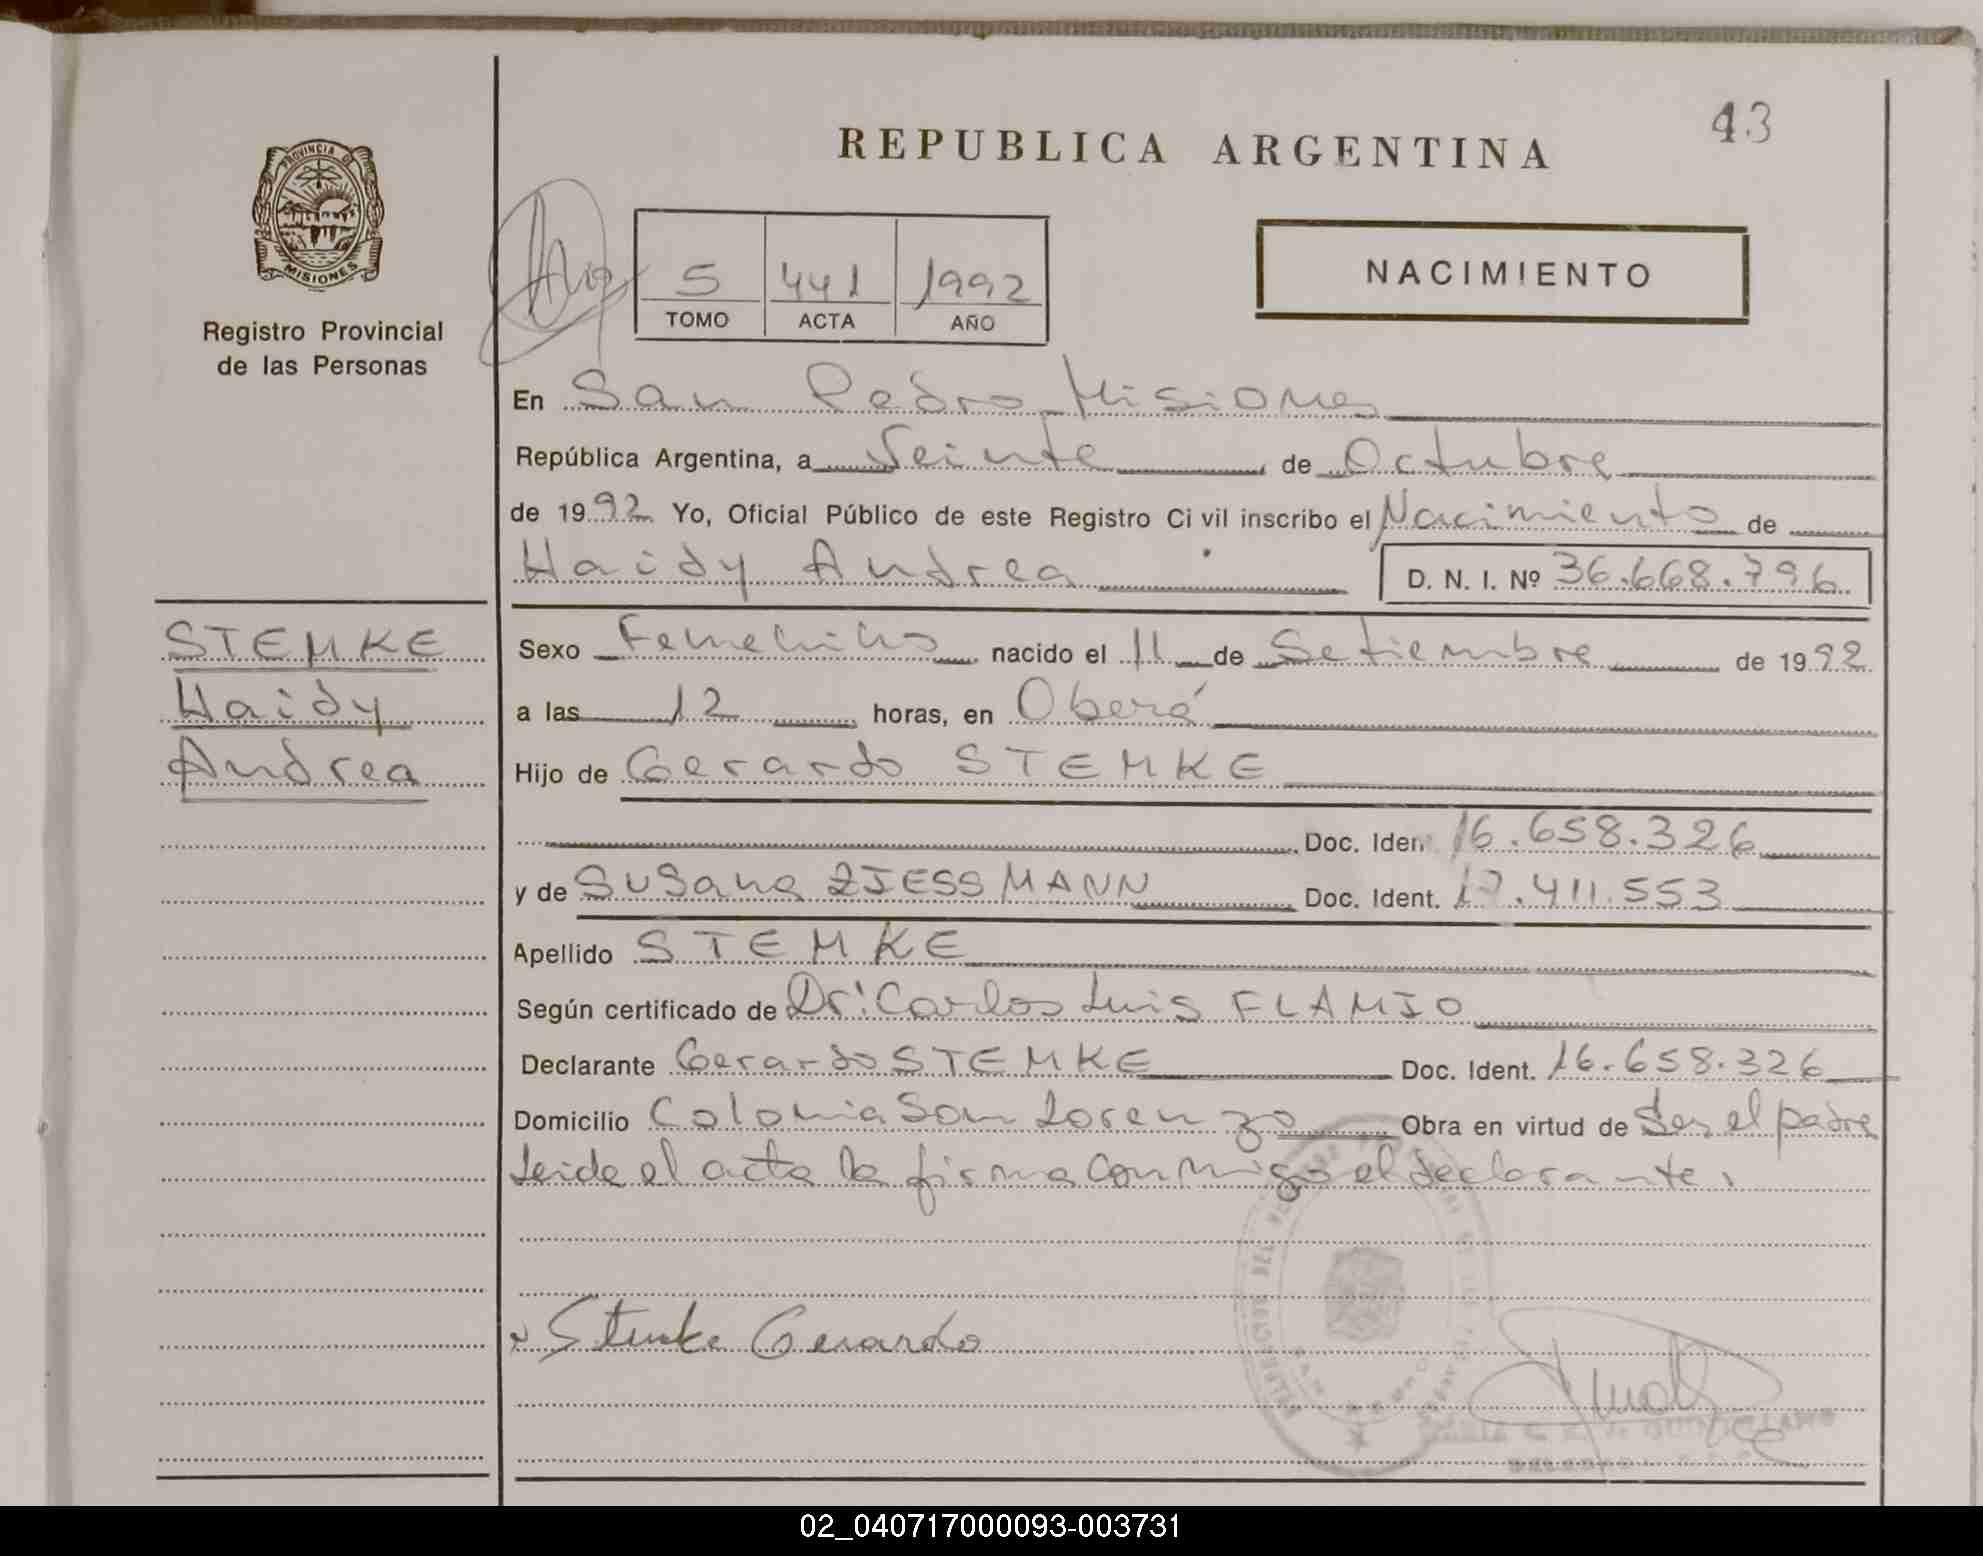 43
REPUBLICA ARGENTINA
PROVINCIA DE
MISIONES
Registro Provincial
de las Personas
5 441 1992
TOMO ACTA AÑO
NACIMIENTO
En San Pedro Misiones
República Argentina, a Veinte de Octubre
de 1992 Yo, Oficial Público de este Registro Civil inscribo el Nacimiento de
Haidy Andrea D. N. I. Nº 36.668.796
STEMKE
Haidy
Andrea
Sexo Femenino nacido el 11 de Setiembre de 1992
a las 12 horas, en Oberá
Hijo de Gerardo STEMKE
Doc. Iden 16.658.326
y de Susana ZIESSMANN Doc. Ident. 17.411.553
Apellido STEMKE
Según certificado de Dr: Carlos Luis FLAMIO
Declarante Gerardo STEMKE Doc. Ident. 16.658.326
Domicilio Colonia San Lorenzo Obra en virtud de Ser el padre
Leida el acta la firma conmigo el declarante.
Stemke Gerardo
02_040717000093-003731